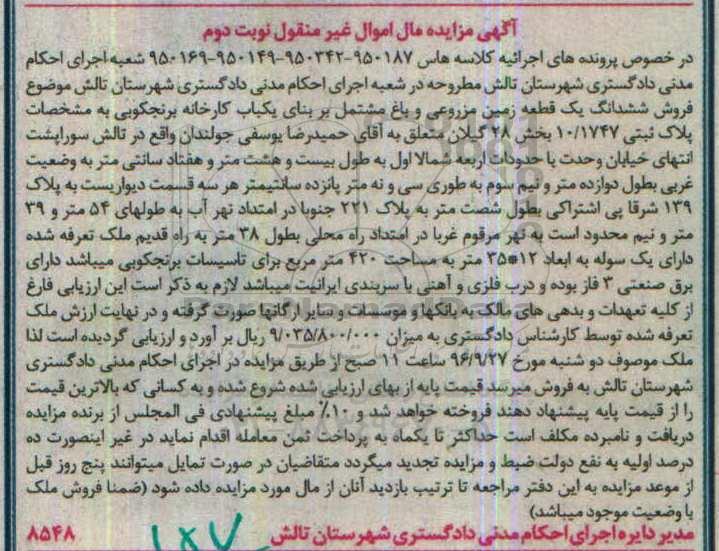 آگهی مزایده مال اموال غیر منقول نوبت دوم
در خصوص پرونده های اجرائیه کلاسه هاس ۹۵۰۱۸۷-۹۵۰۳۴۲-۹۵۰۱۴۹-۹۵۰۱۶۹ شعبه اجرای احکام
مدنی دادگستری شهرستان تالش مطروحه در شعبه اجرای احکام مدنی دادگستری شهرستان تالش موضوع
فروش ششدانگ یک قطعه زمین مزروعی و باغ مشتمل بر بنای یکباب کارخانه برنجکوبی به مشخصات
پلاک ثبتی ۱۰/۱۷۴۷ بخش ۲۸ گیلان متعلق به آقای حمیدرضا یوسفی جولندان واقع در تالش سوراپشت
انتهای خیابان وحدت با حدودات اربعه شمالا اول به طول بیست و هشت متر و هفتاد سانتی متر به وضعیت
غربی بطول دوازده متر و نیم سوم به طوری سی و نه متر پانزده سانتیمتر هر سه قسمت دیواریست به پلاک
۱۳۹ شرقا پی اشتراکی بطول شصت متر به پلاک ۲۲۱ جنوبا در امتداد نهر آب به طولهای ۵۴ متر و ۳۹
متر و نیم محدود است به نهر مرقوم غربا در امتداد راه محلی بطول ۳۸ متر به راه قدیم ملک تعرفه شده
دارای یک سوله به ابعاد ۱۲*۳۵ متر به مساحت ۴۲۰ متر مربع برای تاسیسات برنجکوبی میباشد دارای
برق صنعتی ۳ فاز بوده و درب فلزی و آهنی با سربندی ایرانیت میباشد لازم به ذکر است این ارزیابی فارغ
از کلیه تعهدات و بدهی های مالک به بانکها و موسسات و سایر ارگانها صورت گرفته و در نهایت ارزش ملک
تعرفه شده توسط کارشناس دادگستری به میزان ۹/۰۳۵/۸۰۰/۰۰۰ ریال بر آورد و ارزیابی گردیده است لذا
ملک موصوف دو شنبه مورخ ۹۶/۹/۲۷ ساعت ۱۱ صبح از طریق مزایده در اجرای احکام مدنی دادگستری
شهرستان تالش به فروش میرسد قیمت پایه از بهای ارزیابی شده شروع شده و به کسانی که بالاترین قیمت
را از قیمت پایه پیشنهاد دهند فروخته خواهد شد و ۱۰٪ مبلغ پیشنهادی فی المجلس از برنده مزایده
دریافت و نامبرده مکلف است حداکثر تا یکماه به پرداخت ثمن معامله اقدام نماید در غیر اینصورت ده
درصد اولیه به نفع دولت ضبط و مزایده تجدید میگردد متقاضیان در صورت تمایل میتوانند پنج روز قبل
از موعد مزایده به این دفتر مراجعه تا ترتیب بازدید آنان از مال مورد مزایده داده شود (ضمنا فروش ملک
با وضعیت موجود میباشد)
مدیر دایره اجرای احکام مدنی دادگستری شهرستان تالش ۸۵۴۸
۱۸۷